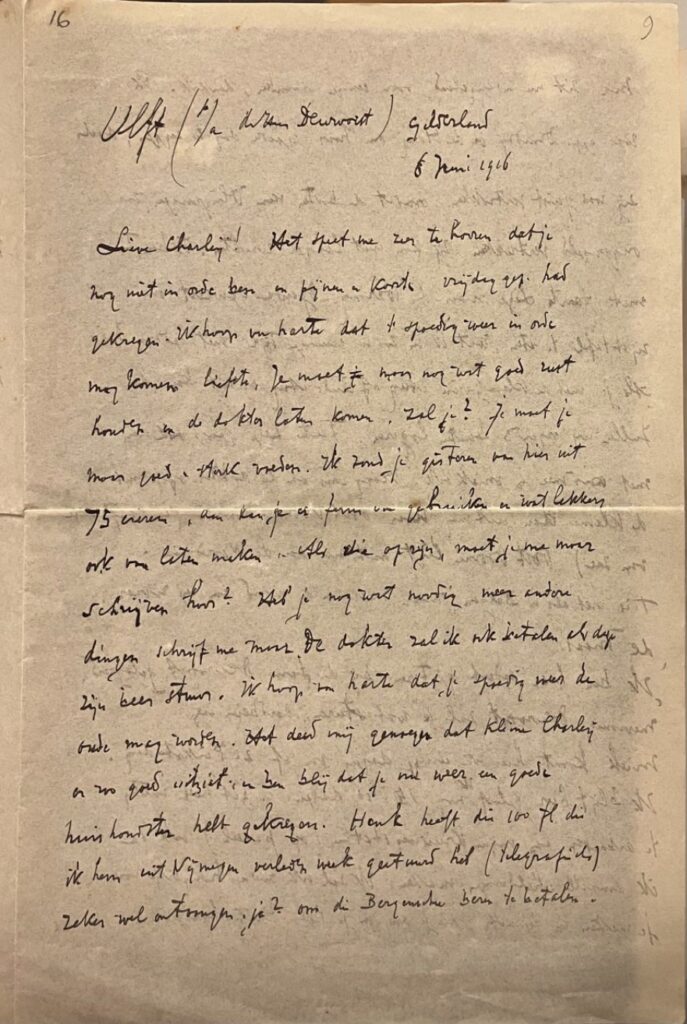 16
9
Ulft (p/a den Heer Deurvorst) Gelderland
6 Juni 1916
Lieve Charley! Het speet me zeer te hooren dat je
nog niet in orde ben en pijnen en koorts vrijdag gep. had
gekregen. Ik hoop van harte dat 't spoedig weer in orde
mag komen liefste, Je moet maar nog wat goed rust
houden en de dokter laten komen, zal je? Je moet je
maar goed sterk voeden. Ik zond je gisteren van hier uit
75 eieren, dan kan je er ferm van gebruiken en wat lekkers
ook van laten maken. Als die op zijn, moet je me maar
schrijven hoor? Heb je nog wat noodig meer andere
dingen schrijf me maar. De dokter zal ik ook betalen als deze
zijn beer stuur. Ik hoop van harte dat je spoedig weer de
oude mag worden. Het deed mij genoegen dat kleine Charley
er zoo goed uitziet, en ben blij dat je nu weer een goede
huishoudster hebt gekregen. Henk heeft die 100 fl die
ik hem uit Nijmegen verleden week gestuurd heb (telegrafisch)
zeker wel ontvangen, ja? om die Bergensche beren te betalen.